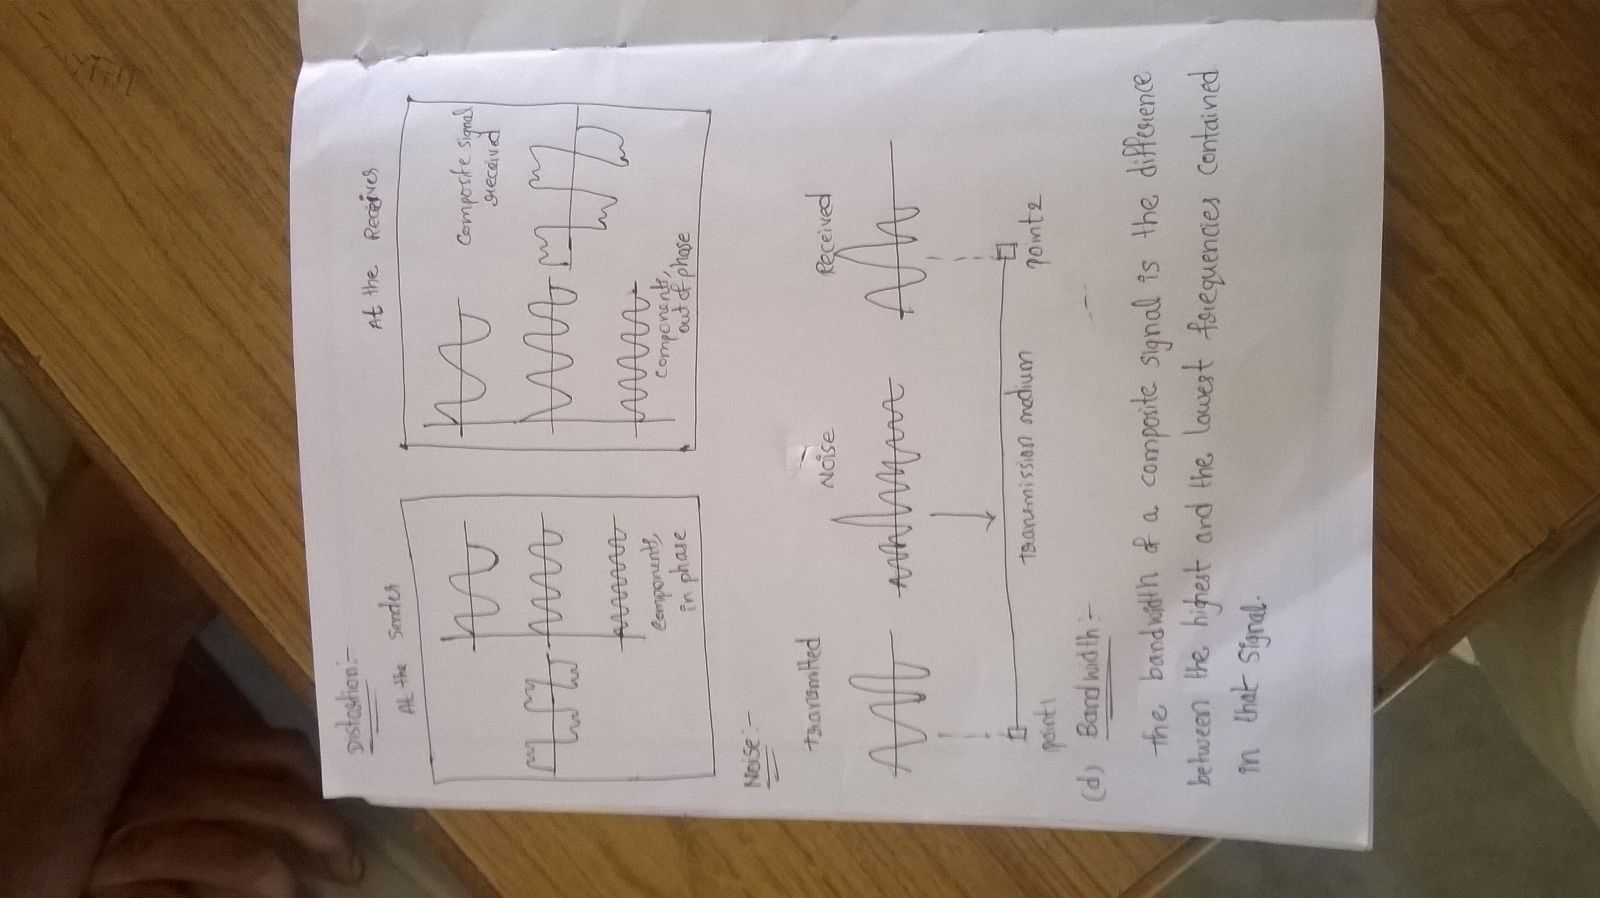 Distortion:-
At the Sender
At the Receiver
Composite signal
received
Components,
in phase
components,
out of phase
Noise:-
transmitted
Noise
Received
transmission medium
point1
point2
(d) Bandwidth:-
the bandwidth of a composite signal is the difference
between the highest and the lowest frequencies contained
in that signal.